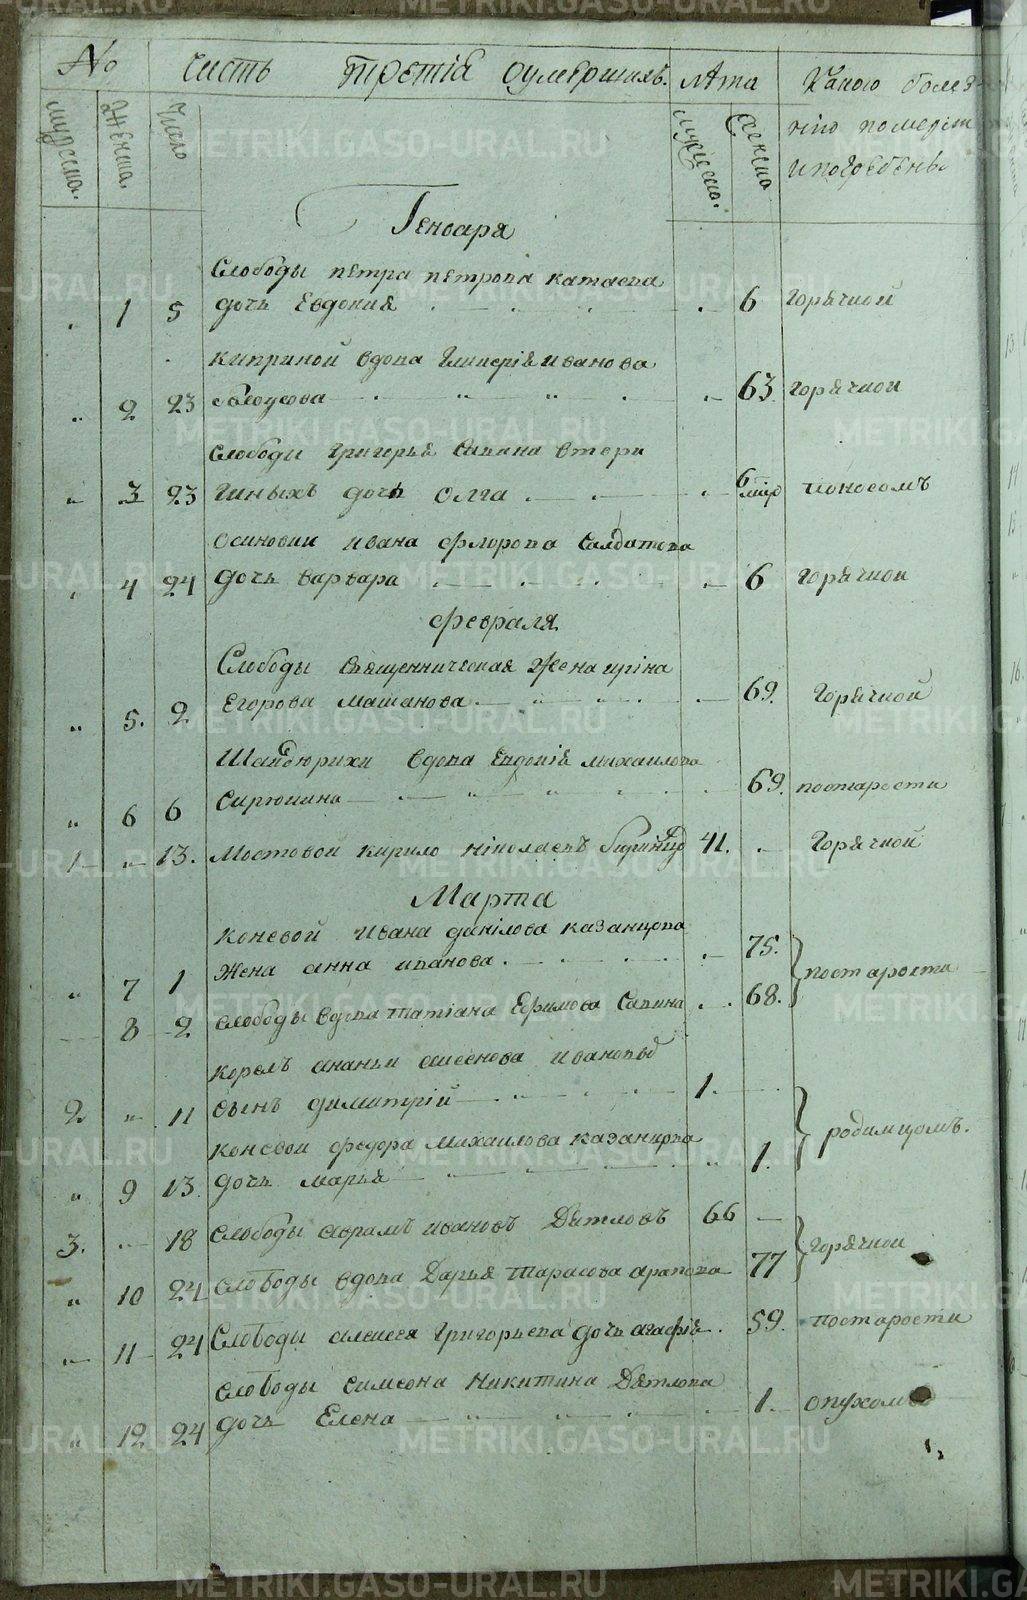 № Часть третія оумершихъ. лѣта Какою болез-
мужеска. Женска. Число мужеска. женска нію померли
и погребены.
Генваря
Слободы петра петрова катаева
1 5 дочь Евдокия 6 горячкой
киприной вдова Гликерія иванова
2 23 Белоусова 63 горячкой
слободы григорья Сапина
3 23 дочь Олга 6 поносомъ
Осиновки ивана флорова Салдатова
4 24 дочь варвара 6 горячкой
февраля
Слободы священническая Жена ирина
5. 2 Егорова машанова 69. Горячкой
вдова евдокія михаилова
6 6 69. постарости
1 13. Мостовой кирило ніколаевъ 41. Горячкой
Марта
коневой ивана данілова казанцова
7 1 жена анна иванова. 75. постарости
8 2 слободы вдова татіана Ефимова Сапина 68.
ананьи иванова
2 11 сынъ димитрій 1. родимцомъ.
коневой федора михаилова казанцова
9 13. дочь марья 1.
3. 18 слободы аврамъ ивановъ Дятловъ 66 горячкой
10 24 слободы вдова Дарья тарасова арапова 77
11 24 Слободы алексея григорьева дочь агафія. 59. постарости
слободы симеона никитина Дятлова
12 24 дочь Елена 1. опухолью
METRIKI.GASO-URAL.RU